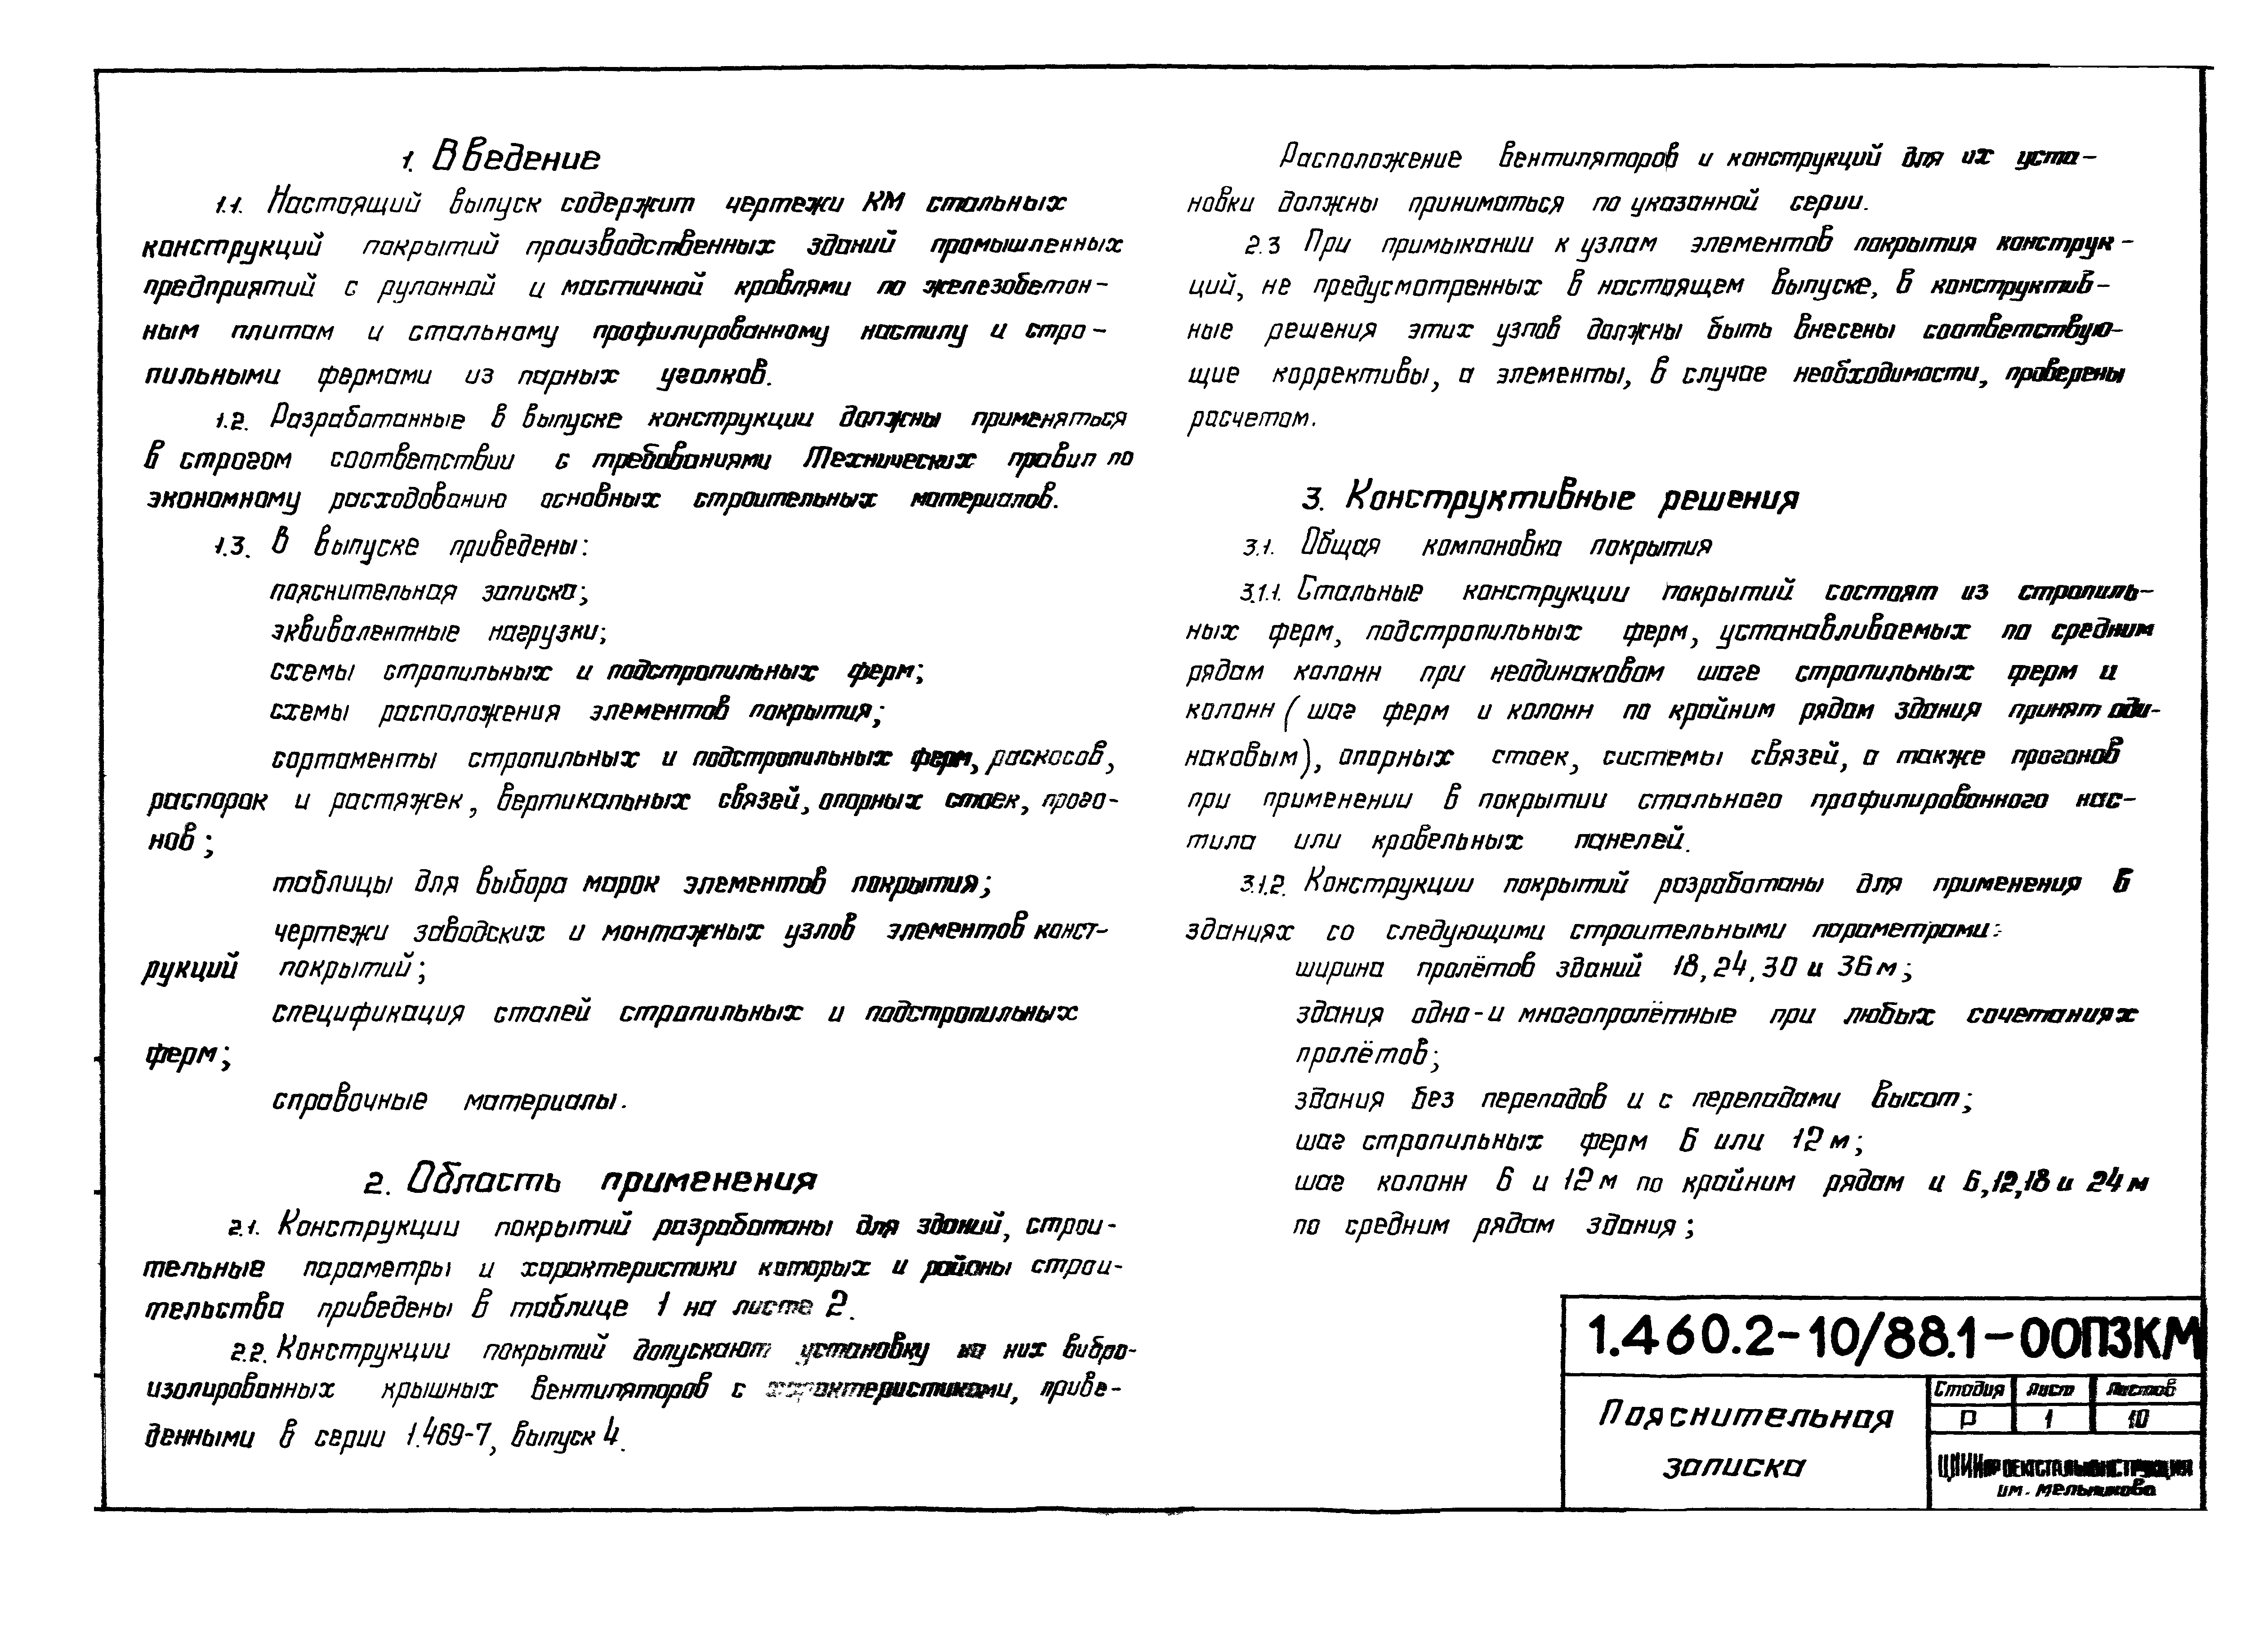 1. Введение
1.1. Настоящий выпуск содержит чертежи КМ стальных
конструкций покрытий производственных зданий промышленных
предприятий с рулонной и мастичной кровлями по железобетон-
ным плитам и стальному профилированному настилу и стро-
пильными фермами из парных уголков.
1.2. Разработанные в выпуске конструкции должны применяться
в строгом соответствии с требованиями Технических правил по
экономному расходованию основных строительных материалов.
1.3. В выпуске приведены:
пояснительная записка;
эквивалентные нагрузки;
схемы стропильных и подстропильных ферм;
схемы расположения элементов покрытия;
сортаменты стропильных и подстропильных ферм, раскосов,
распорок и растяжек, вертикальных связей, опорных стоек, прого-
нов;
таблицы для выбора марок элементов покрытия;
чертежи заводских и монтажных узлов элементов конст-
рукций покрытий;
спецификация сталей стропильных и подстропильных
ферм;
справочные материалы.
2. Область применения
2.1. Конструкции покрытий разработаны для зданий, строи-
тельные параметры и характеристики которых и районы строи-
тельства приведены в таблице 1 на листе 2.
2.2. Конструкции покрытий допускают установку на них вибро-
изолированных крышных вентиляторов с характеристиками, приве-
денными в серии 1.469-7, выпуск 4.
Расположение вентиляторов и конструкций для их уста-
новки должны приниматься по указанной серии.
2.3 При примыкании к узлам элементов покрытия конструк-
ций, не предусмотренных в настоящем выпуске, в конструктив-
ные решения этих узлов должны быть внесены соответствую-
щие коррективы, а элементы, в случае необходимости, проверены
расчетом.
3. Конструктивные решения
3.1. Общая компоновка покрытия
3.1.1. Стальные конструкции покрытий состоят из стропиль-
ных ферм, подстропильных ферм, устанавливаемых по средним
рядам колонн при неодинаковом шаге стропильных ферм и
колонн (шаг ферм и колонн по крайним рядам здания принят оди-
наковым), опорных стоек, системы связей, а также прогонов
при применении в покрытии стального профилированного нас-
тила или кровельных панелей.
3.1.2. Конструкции покрытий разработаны для применения в
зданиях со следующими строительными параметрами:
ширина пролётов зданий 18, 24, 30 и 36 м;
здания одно-и многопролётные при любых сочетаниях
пролётов;
здания без перепадов и с перепадами высот;
шаг стропильных ферм 6 или 12 м;
шаг колонн 6 и 12 м по крайним рядам и 6, 12, 18 и 24 м
по средним рядам здания;
1.460.2-10/88.1-00ПЗКМ
Пояснительная
записка
Стадия Лист Листов
Р 1 10
ЦНИИПРОЕКТСТАЛЬКОНСТРУКЦИЯ
им. Мельникова